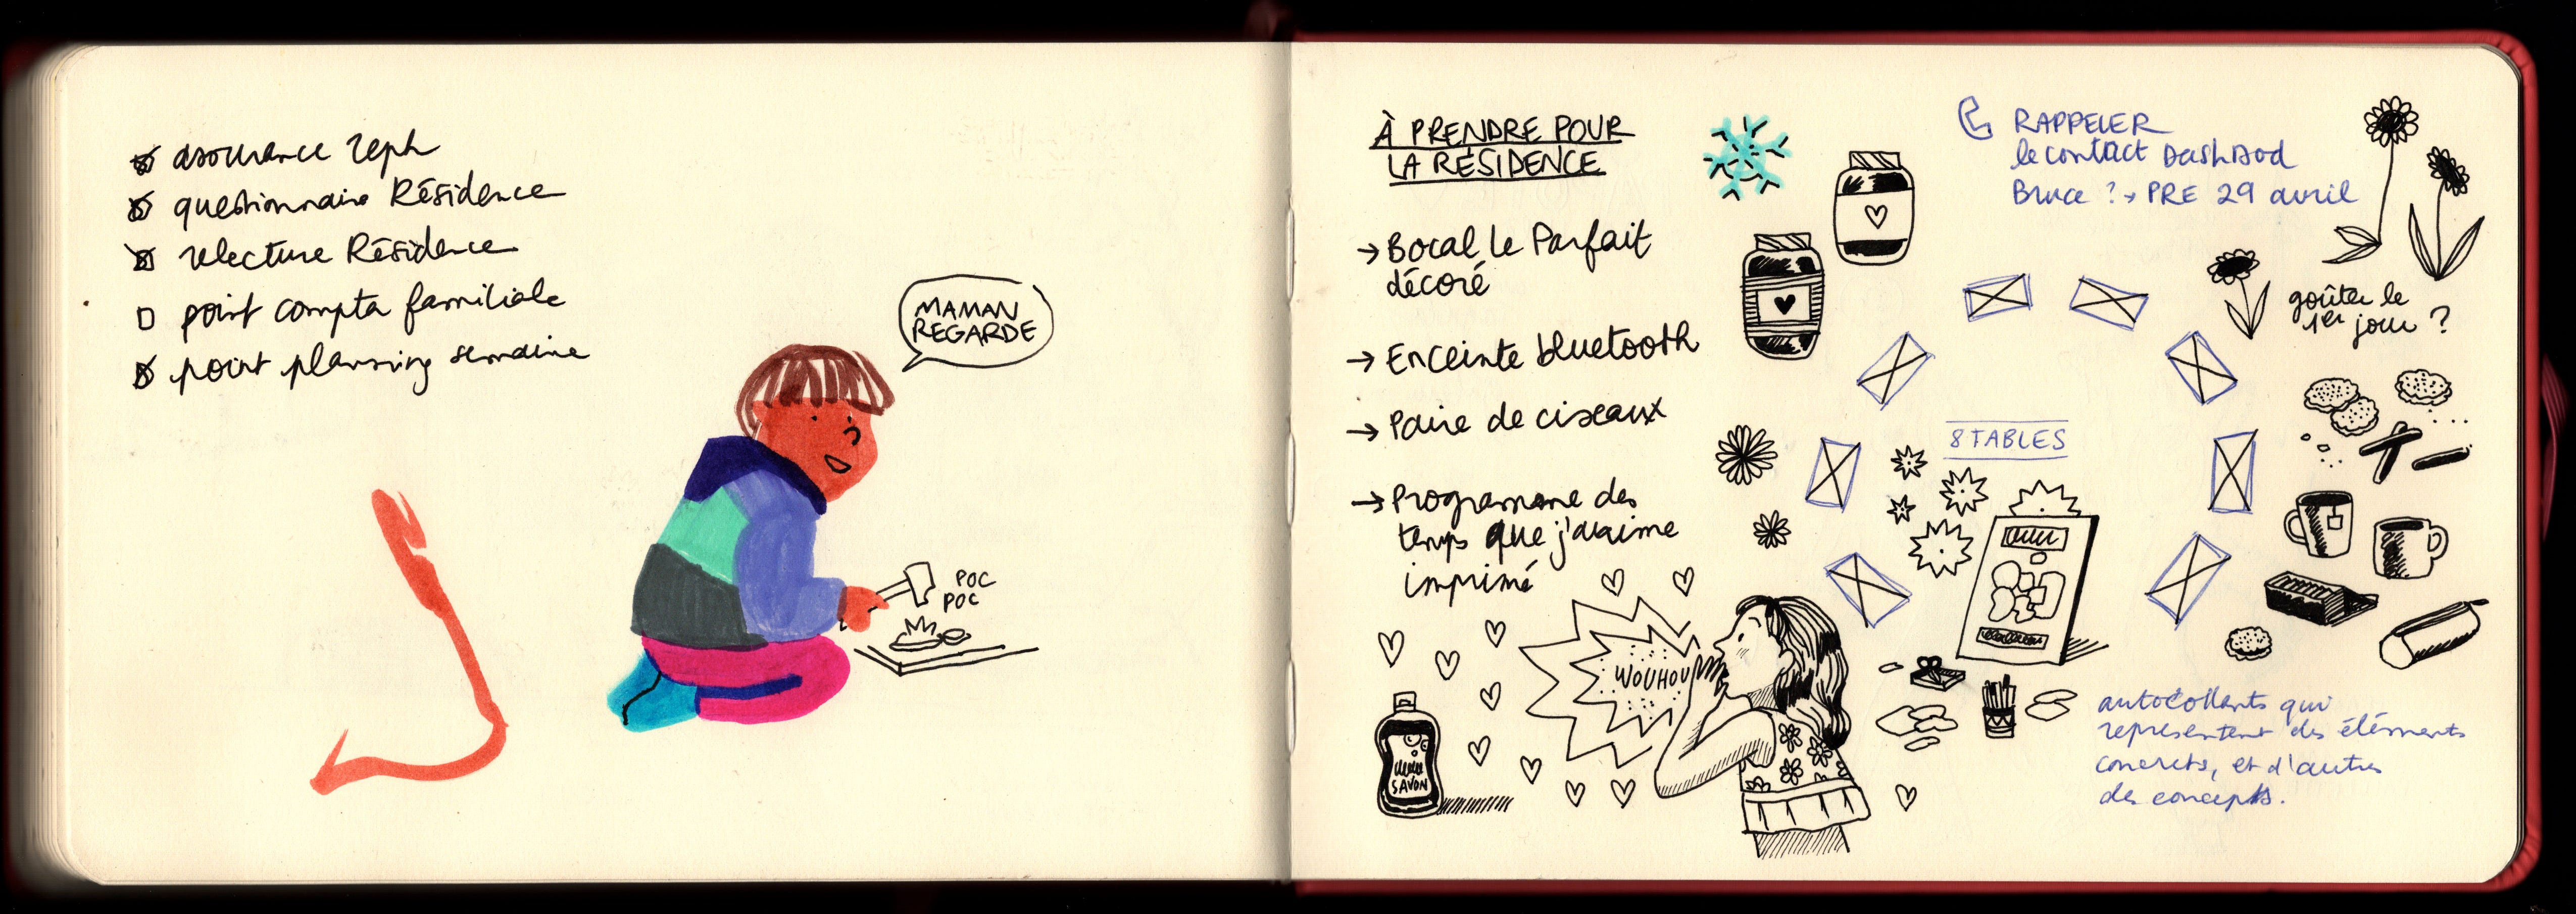 assurance zeph
questionnaire Résidence
relecture Résidence
point compta familiale
point planning semaine
MAMAN
REGARDE
POC
POC
À PRENDRE POUR
LA RÉSIDENCE
→ Bocal Le Parfait
décoré
→ Enceinte bluetooth
→ Paire de ciseaux
→ Programme des
temps que j'aurai
imprimé
WOUHOU
SAVON
RAPPELER
le contact
Bruce ? → PRE 29 avril
goûter le
1er jour ?
8 TABLES
autocollants qui
représentent des éléments
concrets, et d'autres
des concepts.